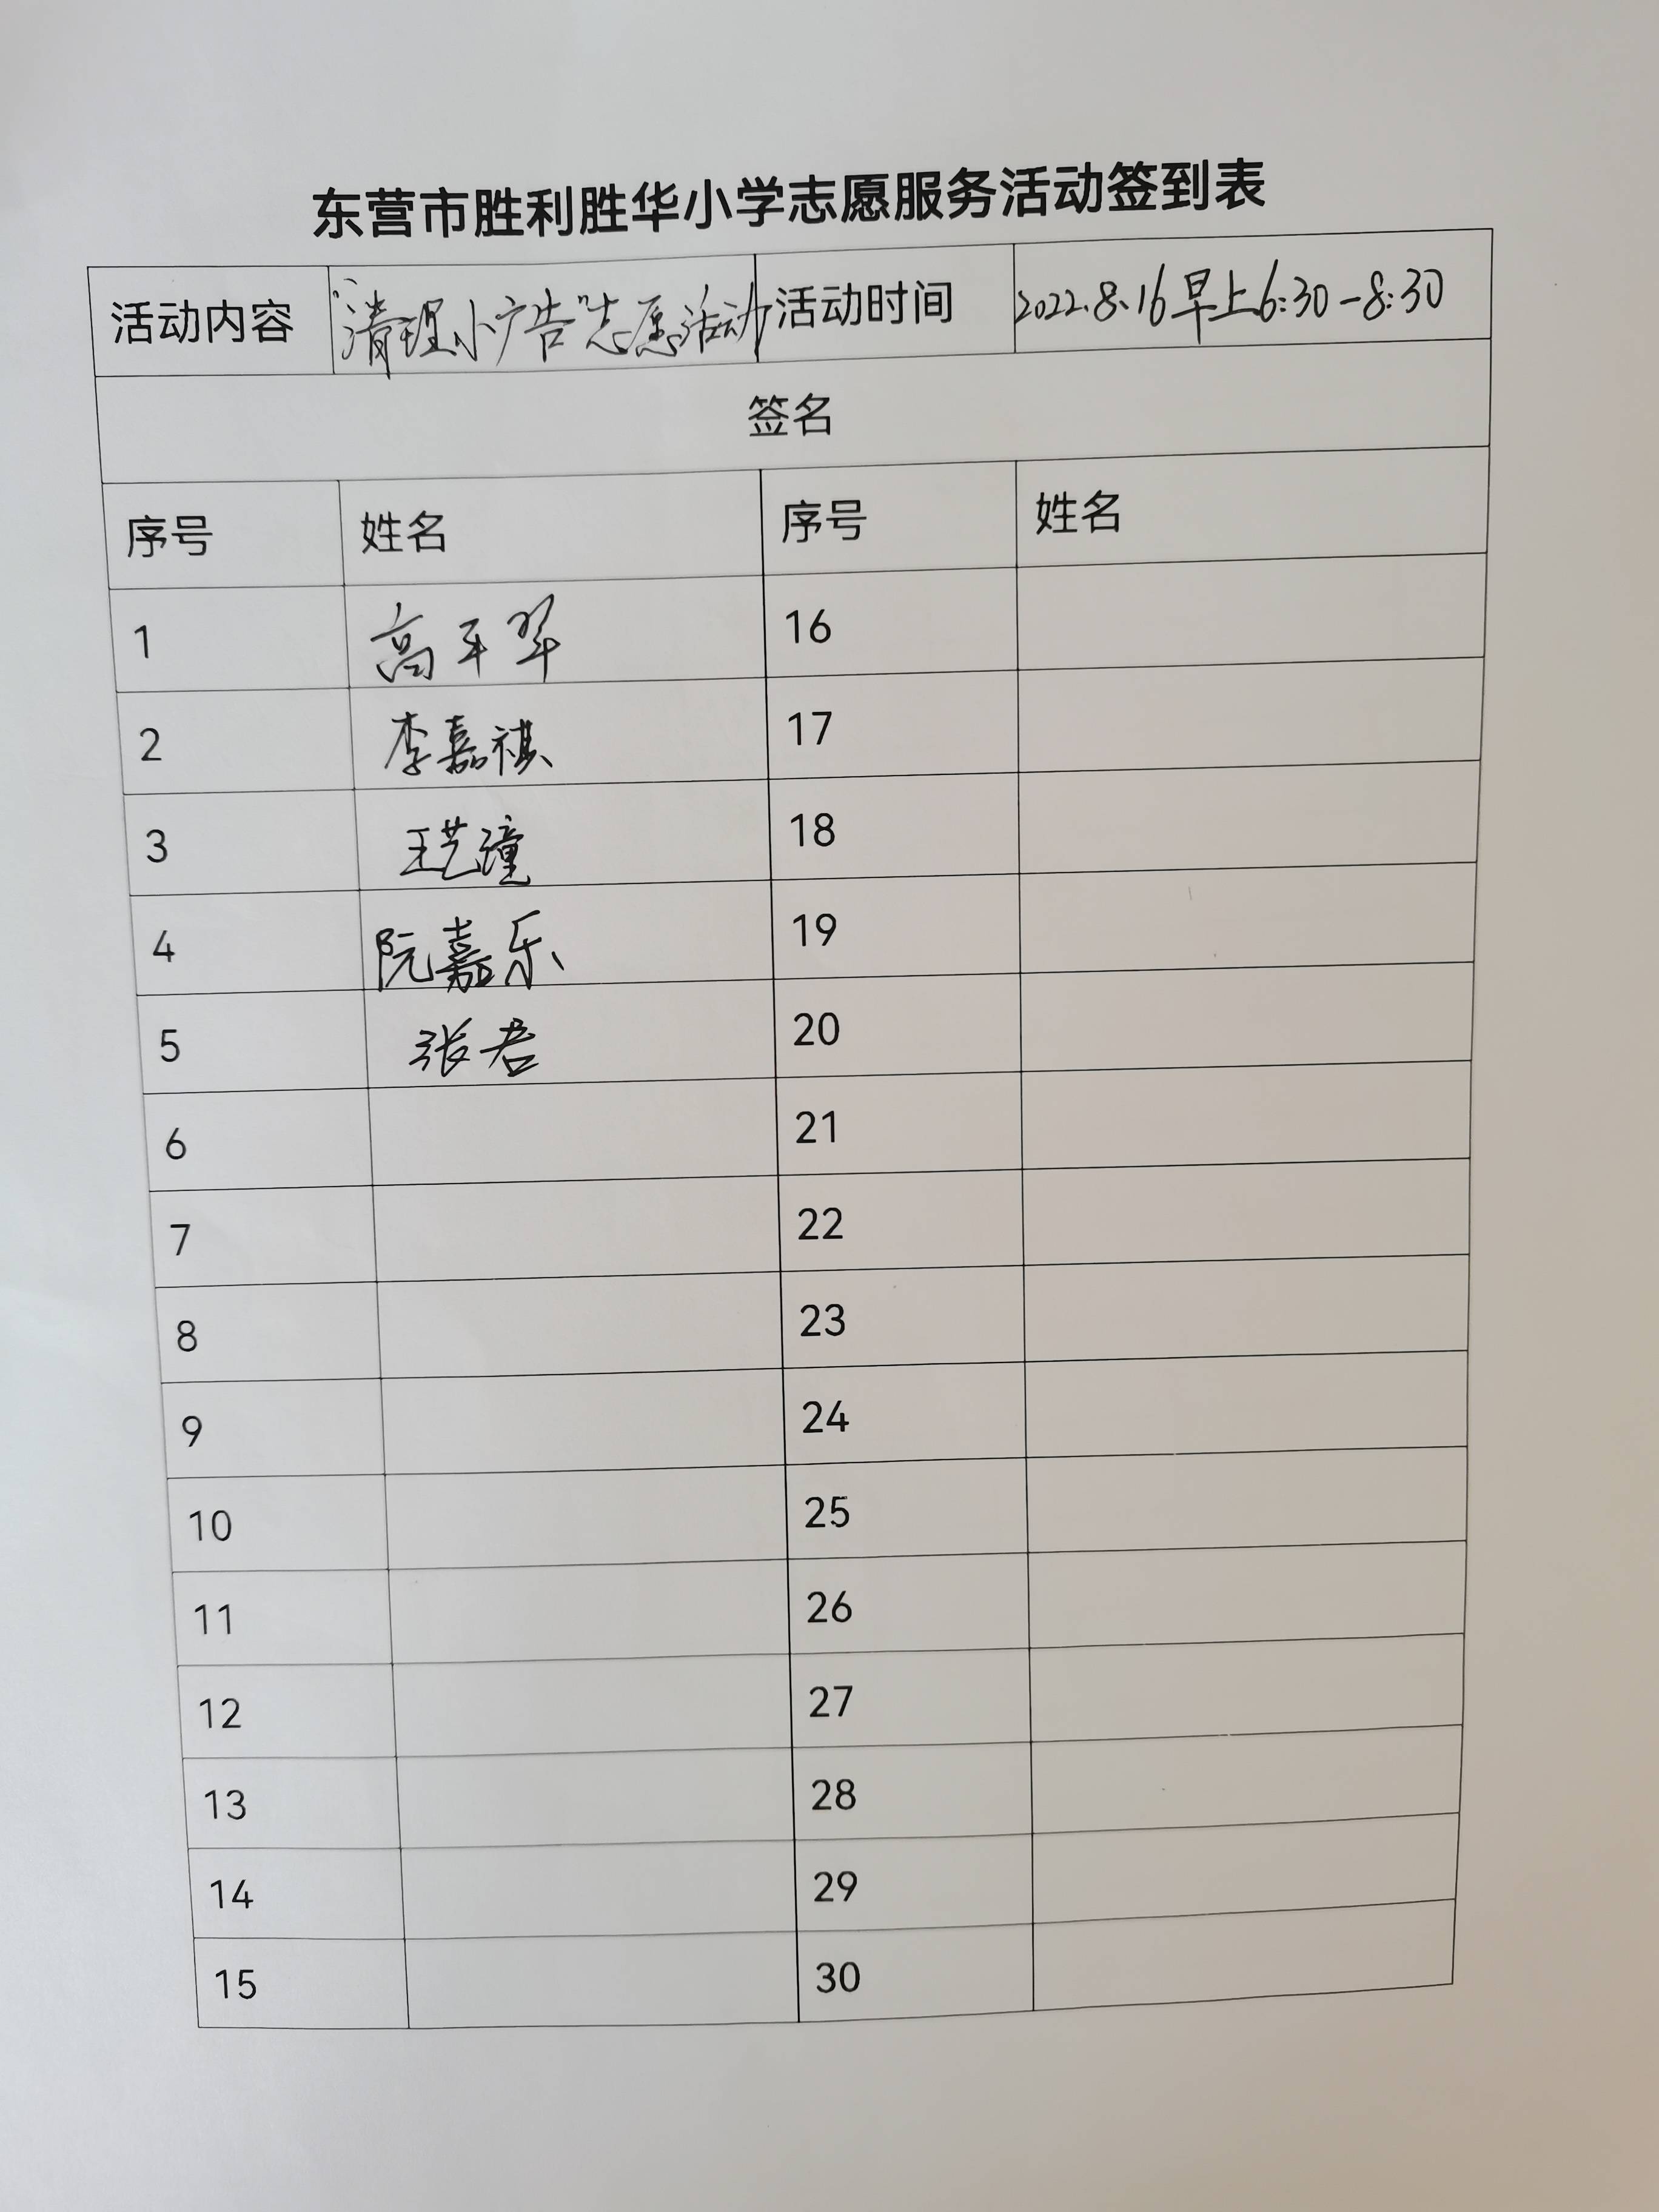 东营市胜利胜华小学志愿服务活动签到表
活动内容 "清理小广告"志愿活动 活动时间 2022.8.16早上6:30-8:30
签名
序号 姓名 序号 姓名
1 高平翠 16
2 李嘉祺 17
3 王艺潼 18
4 阮嘉乐 19
5 张君 20
6 21
7 22
8 23
9 24
10 25
11 26
12 27
13 28
14 29
15 30